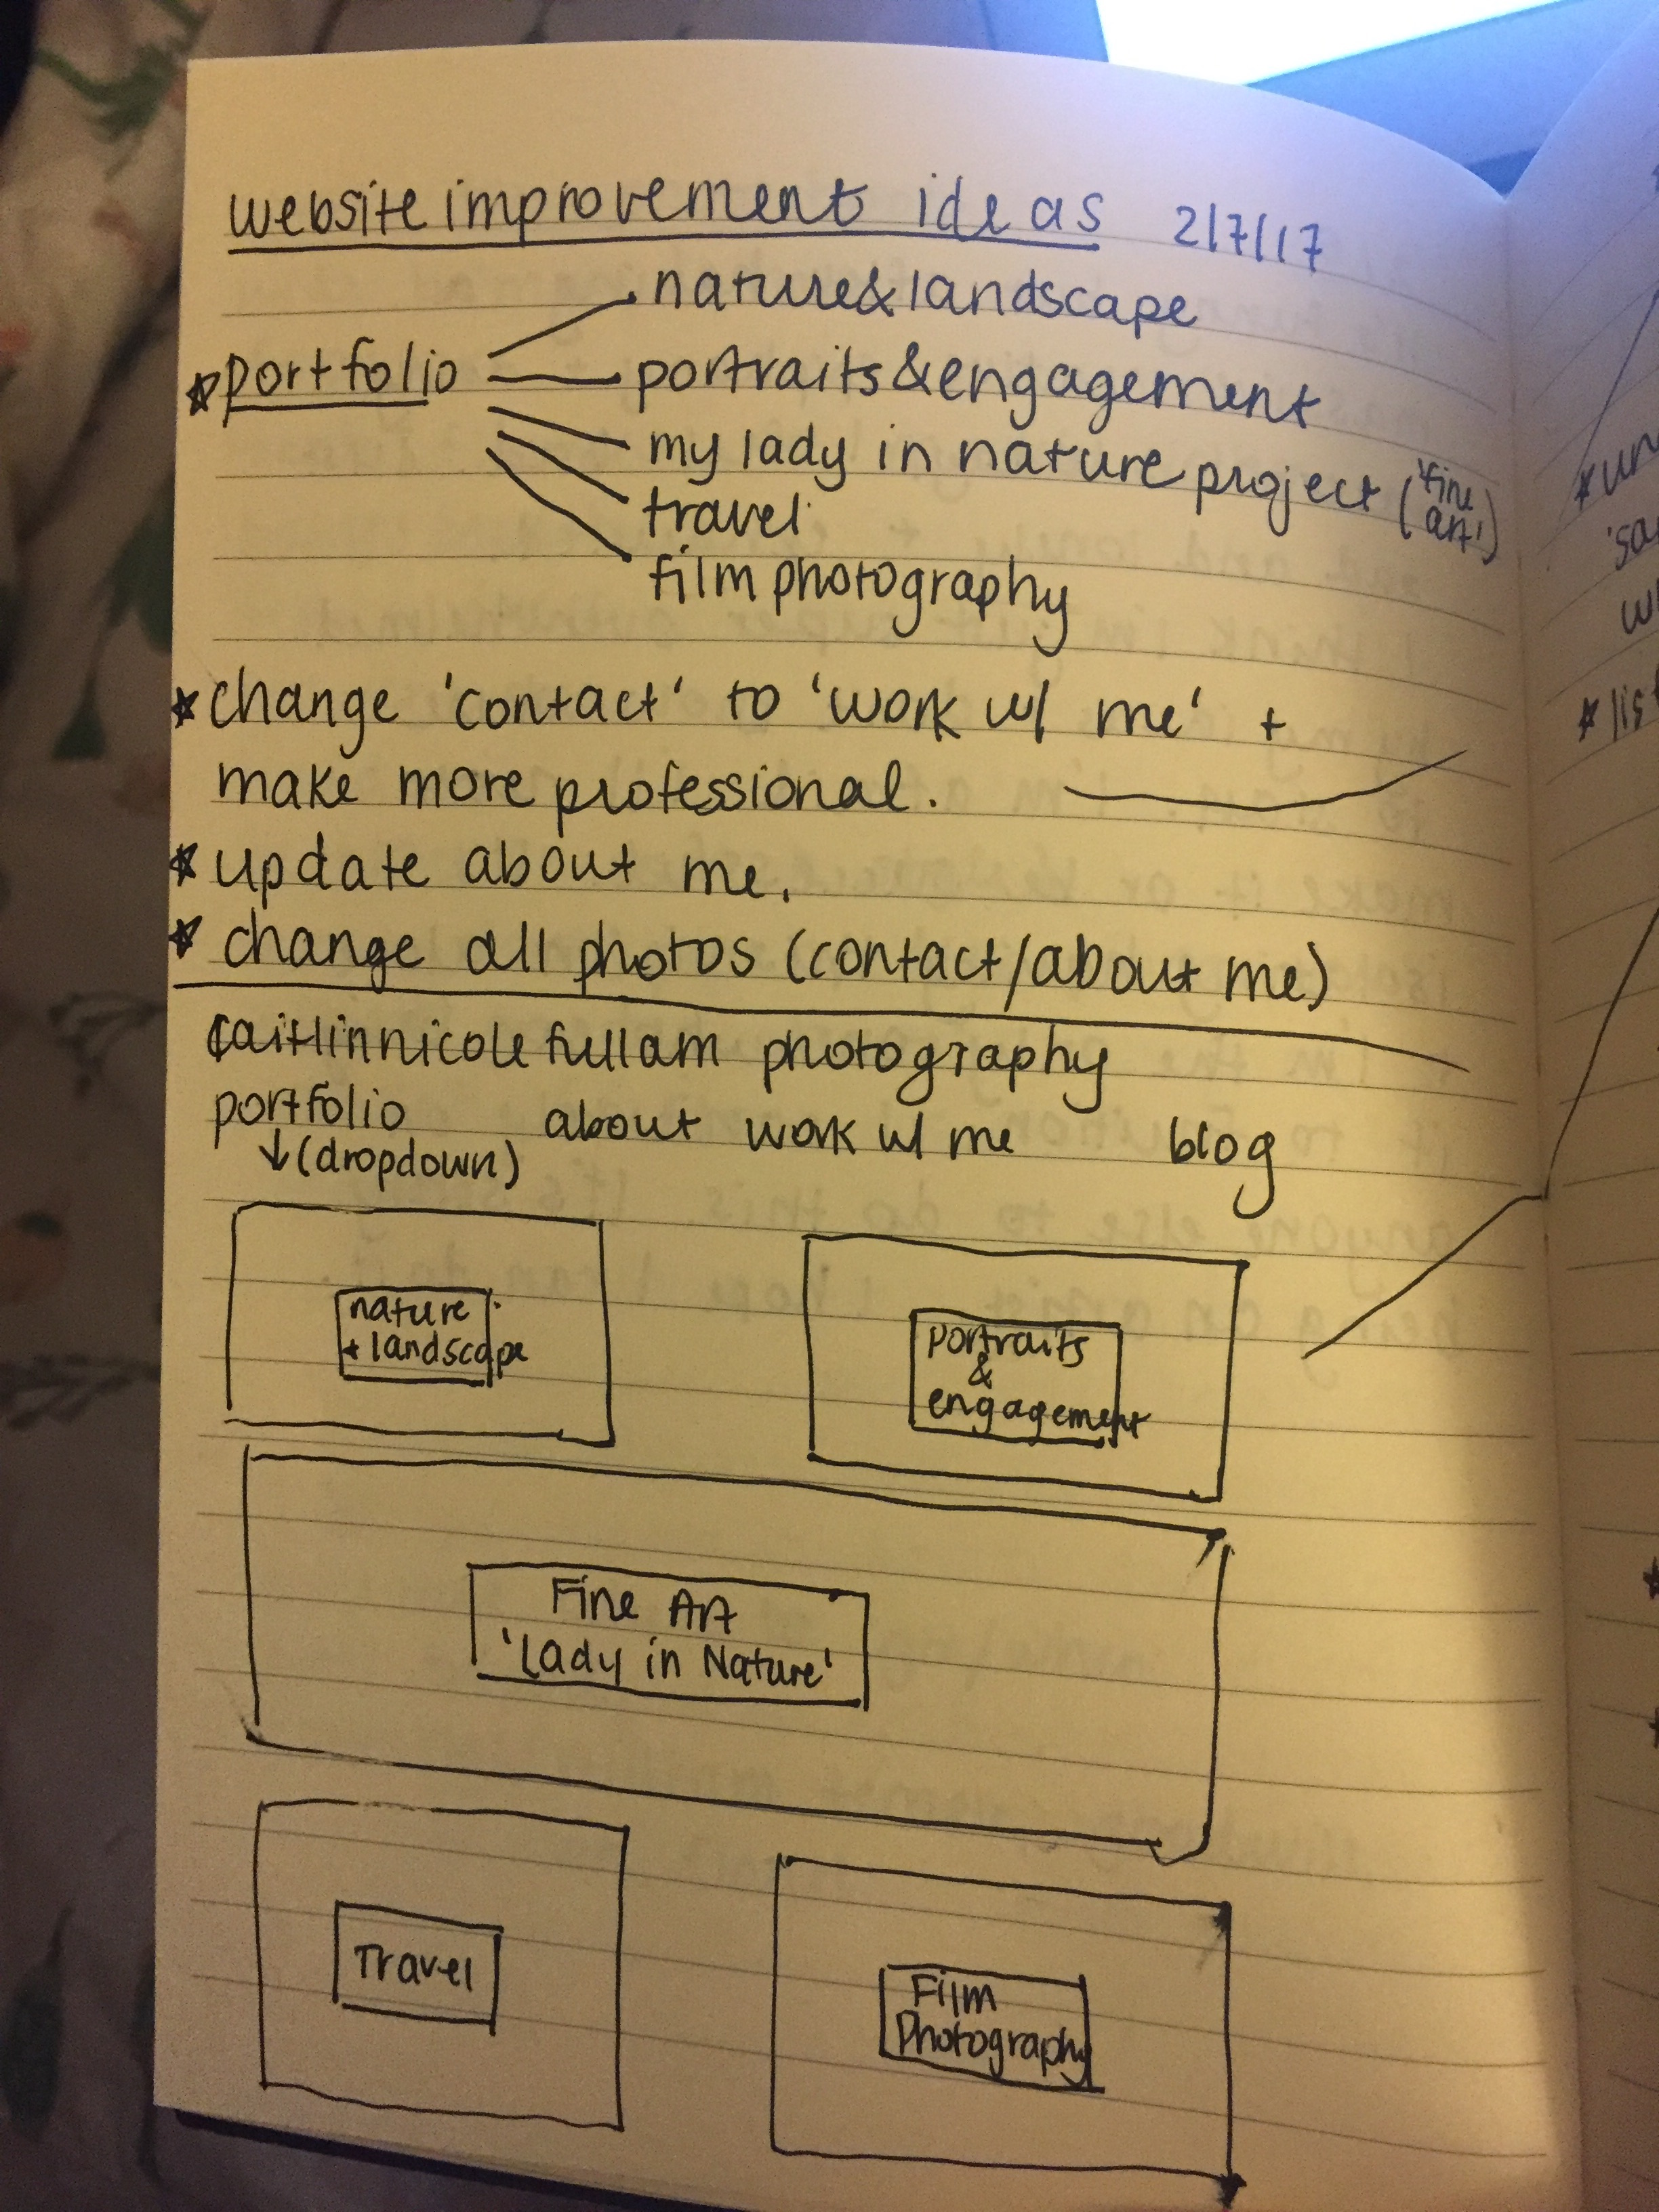 website improvement ideas 2/7/17
nature & landscape
portfolio
portraits & engagement
my lady in nature project ('fine art')
travel
film photography
change 'contact' to 'work w/ me' +
make more professional.
update about me.
change all photos (contact/about me)
caitlinnicolefullam photography
portfolio about work w/ me blog
↓(dropdown)
nature
+ landscape
portraits
&
engagement
Fine Art
'Lady in Nature'
Travel
Film
Photography